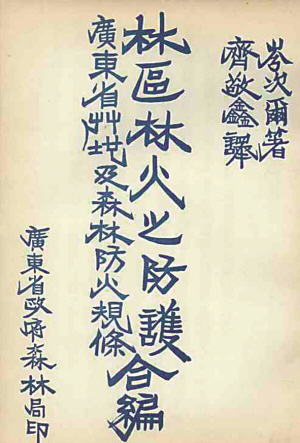 岑次爾著
齊敬鑫譯
林區林火之防護合編
廣東省艸地及森林防火規條
廣東省政府森林局印